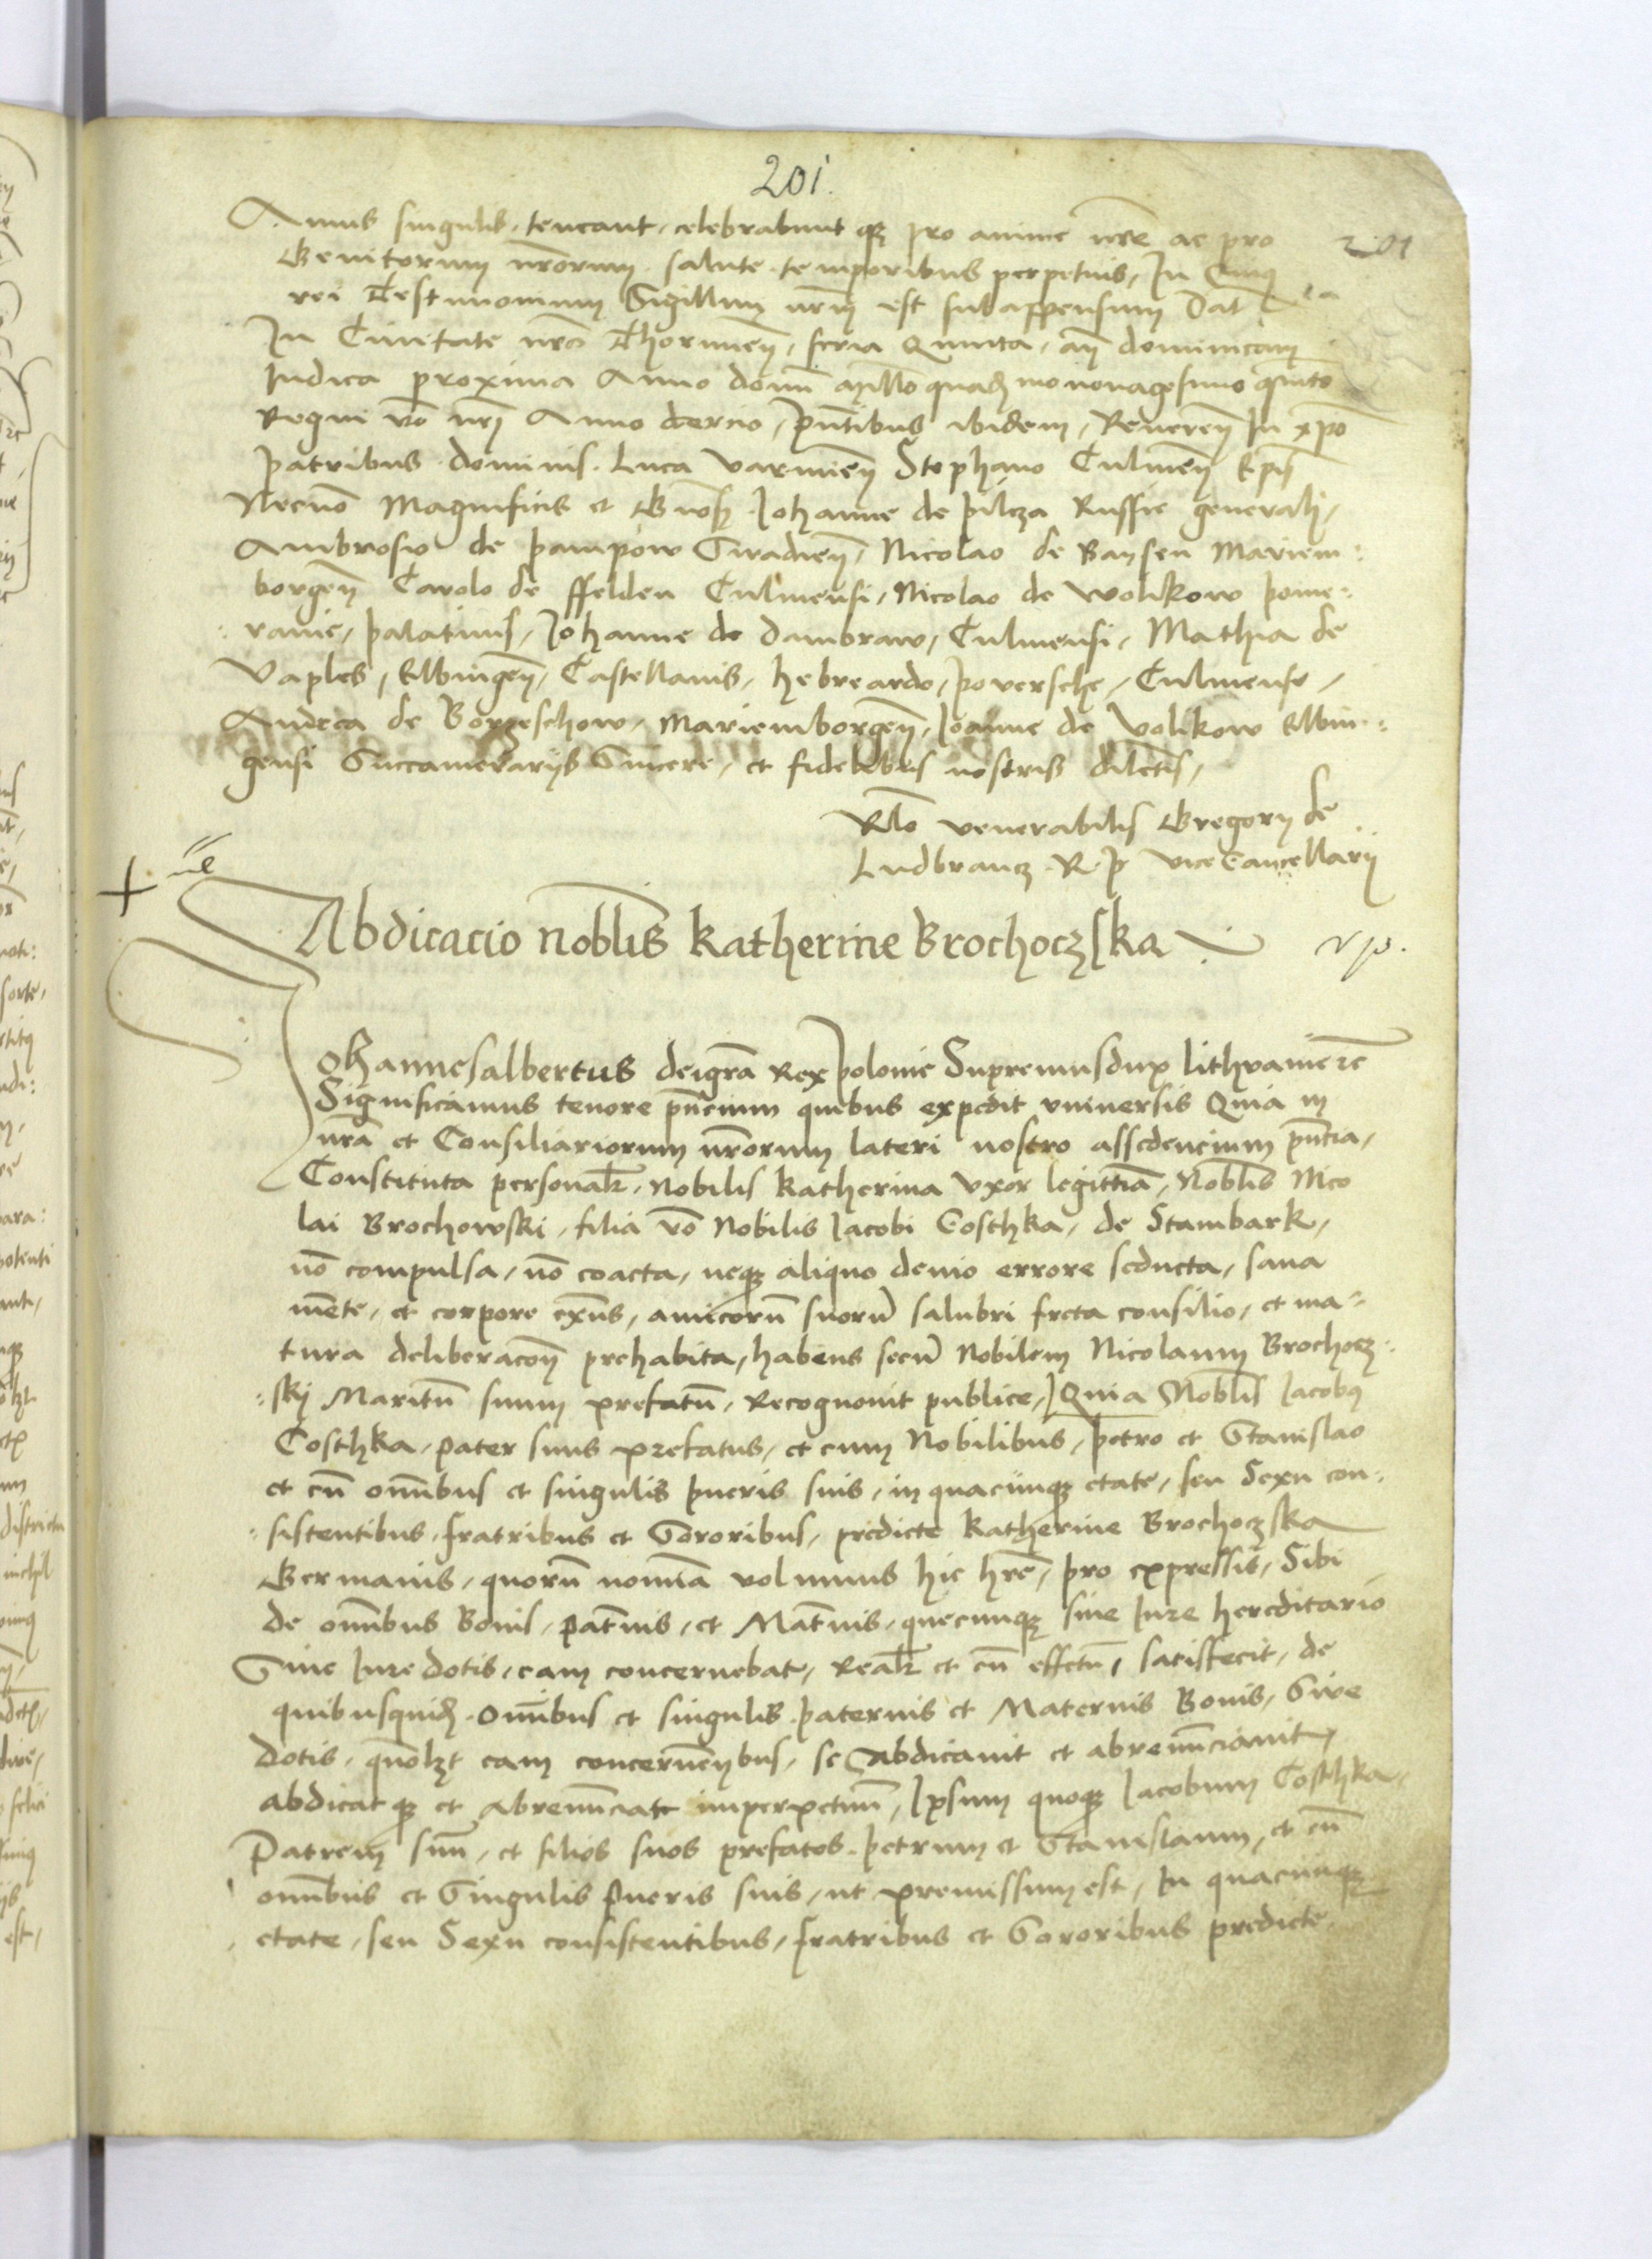 201.
201
Annis singulis, teneant, celebrabunt qȝ pro anime nr̄e ac pro
Genitorum nr̄orum salute temporibus perpetuis, In Cuiꝯ
rei Testimonium Sigillum nr̄m est subappensum Dat
In Ciuitate nr̄a Thorunien̄, feria Quinta, an̄ dominicam
Iudica proxima Anno domī millō quadmo nonagesimo quīto
Regni vō nr̄i Anno tercio, pn̄tibus ibidem, Reueren̄ In xp̄o
patribus dominis Luca Varmien̄ Stephano Culmen̄ Ep̄is
Necnō Magnificis et Gn̄osis Iohanne de pilcza Russie generali,
Ambrosio de pampow Siradien̄, Nicolao de Baysen Mariem:
borgen̄ Carolo de ffelden Culmensi, Nicolao de Wolkow pome:
:ranie, palatinis, Iohanne de dambraw, Culmensi, Mathia de
Vaples, Elbingen̄, Castellanis, hebreardo, poversche, Culmense,
Andrea de Borzeschow, Mariemborgen̄, Ioanne de Volikow Elbin:
gensi Succamerariis Sincere, et fidelibus nostris dilctis,
Rlō venerabilis Gregorij de
Ludbrancz R p Vice Cancellarij
+
Abdicacio nob̄lis Katherine Brochoczska
Iohannesalbertus deigrā Rex polonie Supremusdux Lithvanie ꝛc̄
Significamus tenore pn̄cium quibus expedit vniuersis Quia in
nrā et Consiliariorum nr̄orum lateri nostro assedencium pn̄cia,
Constituta personalr̄, Nobilis Katherina Vxor legittīa, Nob̄lis Nico
lai Brochowski, filia vō Nobilis Iacobi Coschka, de Stambark,
nō compulsa, nō coacta, neqȝ aliquo deuio errore seducta, sana
mēte, et corpore exn̄s, amicorū suorū salubri freta consilio, et ma:
tura deliberacōn̄ prehabita, habens secū Nobilem Nicolaum Brochocz:
:skij Maritū suum prefatū, Recognouit publice, Quia Nob̄lis Iacobꝯ
Coschka, pater suus prefatus, et cum Nobilibus, petro et Stanislao
et cū om̄ibus et singulis pueris suis, in quacunqȝ etate, seu Sexu con:
:sistentibus, fratribus et Sororibus, predicte Katherine Brochoczska
Germanis, quorū nomīa volumus hic hr̄e, pro expressis, Sibi
de om̄ibus Bonis, pat̄nis, et Mat̄nis, quecunqȝ siue Iure hereditario
Siue Iure dotis, eam concernebat, Realr̄ et cū effctu, satisfecit, de
quibusquid Om̄ibus et singulis paternis et Maternis Bonis, Sive
dotis, quolȝt eam concernen̄bus, se Abdicauit et abrenūnciauit,
abdicat qȝ et abrenūnciat imperpetuū, Ipsum quoqȝ Iacobum Coschka,
Patrem suū, et filios suos prefatos petrum et Stanislaum, et cū
om̄ibus et Singulis Pueris suis, ut premissum est, In quacunqȝ
etate, seu Sexu consistentibus, fratribus et Sororibus predicte